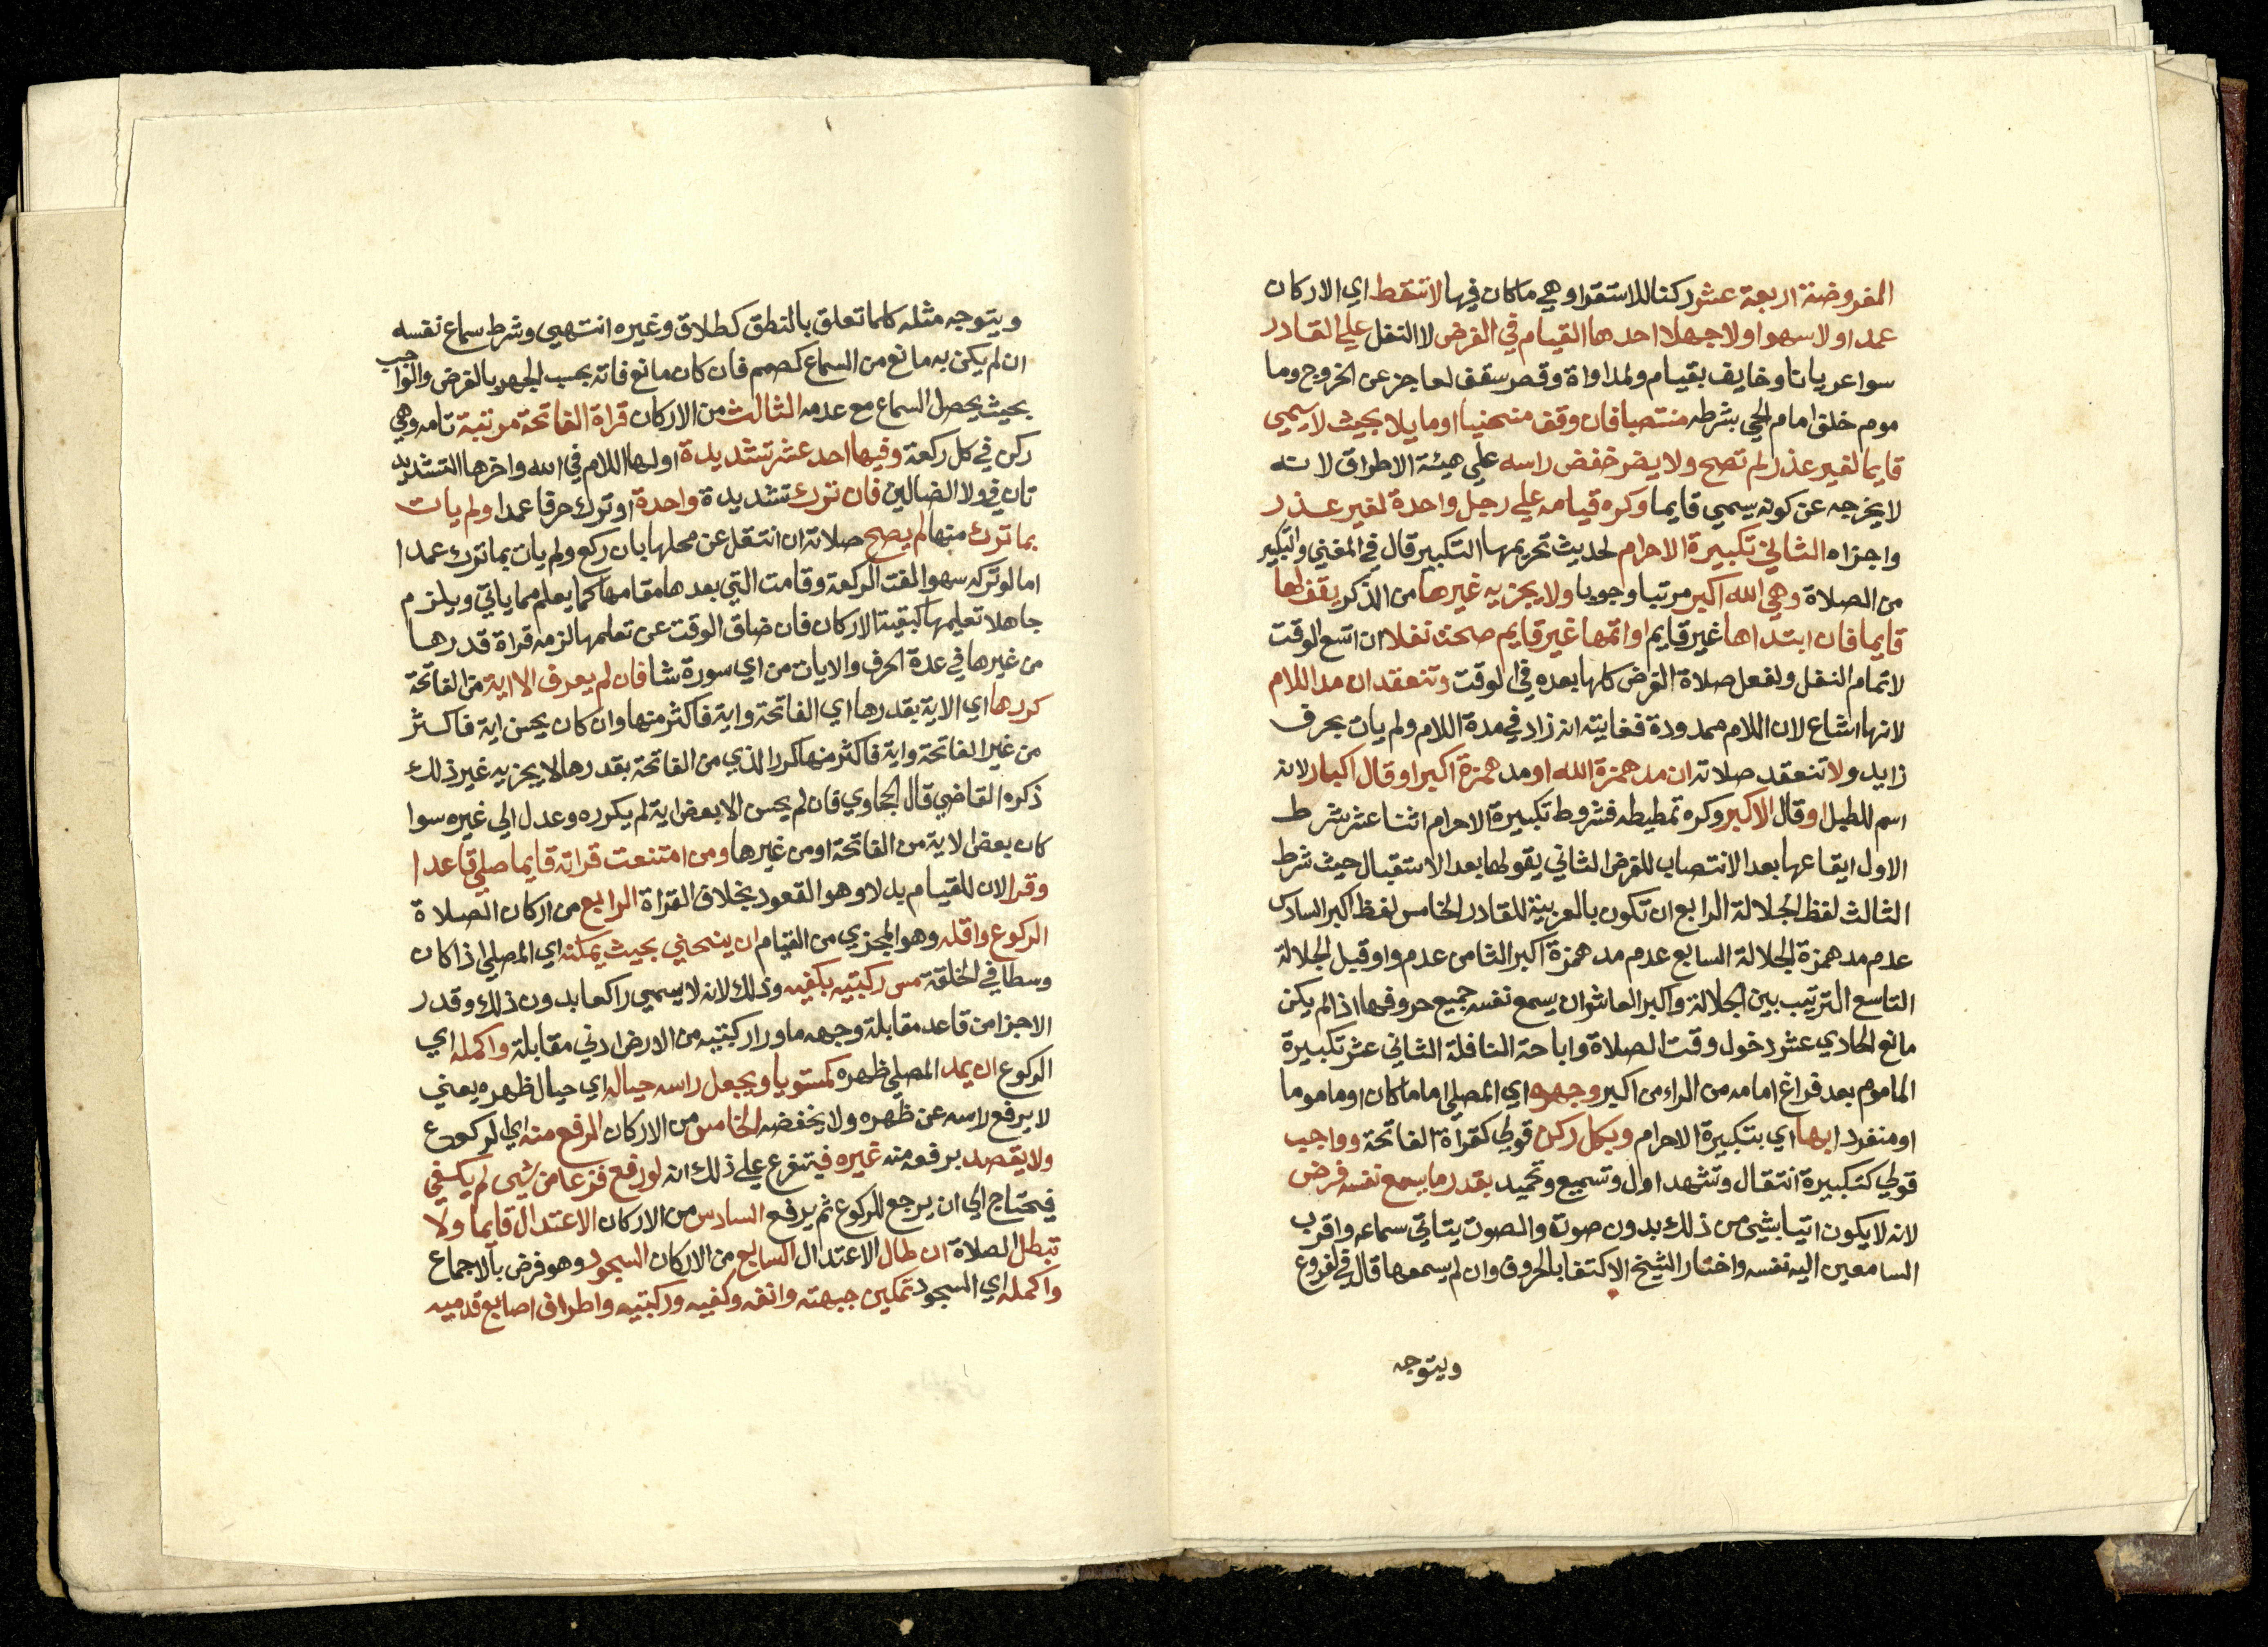 المفروضة اربعة عشر ركنا للاستقرا وهي ما كان فيها لا تسقط اي الاركان
عمدا ولا سهوا ولا جهلا احدها القيام في الفرض لا النفل علي القادر
سوا عريانا وخايف بقيام ولمداواة وقصر سقف لعاجز عن الخروج وما
موم خلف امام الحي بشرطه منتصبا فان وقف منحنيا او مايلا بحيث لا يسمي
قايما لغير عذر لم تصح ولا يضر خفض راسه علي هيئة الاطراق لانه
لا يخرجه عن كونه يسمي قايما وكره قيامه علي رجل واحدة لغير عذر
واجزاه الثاني تكبيرة الاحرام لحديث تحريمها التكبير قال في المغني والتكبير
من الصلاة وهي الله اكبر مرتبا وجوبا ولا يجزيه غيرها من الذكر يقف لها
قايما فان ابتداها غير قايم او اتمها غير قايم صحت نفلا ان اتسع الوقت
لاتمام النفل ولفعل صلاة الفرض كلها بعده في الوقت وتنعقد ان مد اللام
لانها اشاع لان اللام ممدودة فغايته انه زاد في مدة اللام ولم يات بحرف
زايد ولا تنعقد صلاته ان مد همزة الله او مد همزة اكبر او قال اكبار لانه
اسم للطبل او قال الاكبر وكره تمطيطه فشروط تكبيرة الاحرام اثنا عشر شرط
الاول ايقاعها بعد الانتصاب للفرض الثاني يقولها بعد الاستقبال حيث شرط
الثالث لفظ الجلالة الرابع ان تكون بالعربية للقادر الخامس لفظ اكبر السادس
عدم مد همزة الجلالة السابع عدم مد همزة اكبر الثامن عدم واو قبل الجلالة
التاسع الترتيب بين الجلالة واكبر العاشر ان يسمع نفسه جميع حروفها اذا لم يكن
مانع الحادي عشر دخول وقت الصلاة واباحة النافلة الثاني عشر تكبيرة
الماموم بعد فراغ امامه من الراء من اكبر وجهره اي المصلي اماما كان او ماموما
او منفردا بها اي بتكبيرة الاحرام وبكل ركن قولي كقراة الفاتحة وواجب
قولي كتكبيرة انتقال وتشهد اول وتسميع وتحميد بقدر ما يسمع نفسه فرض
لانه لا يكون اتيا بشي من ذلك بدون صوت والصوت يتاتي سماعه واقرب
السامعين اليه نفسه واختار الشيخ الاكتفا بالحروف وان لم يسمعها قال في الفروع
ويتوجه
ويتوجه مثله كلما تعلق بالنطق كطلاق وغيره انتهي وشرط سماع نفسه
ان لم يكن به مانع من السماع كصمم فان كان مانع فانه يجب الجهر بالفرض والواجب
بحيث يحصل السماع مع عدمه الثالث من الاركان قراة الفاتحة مرتبة تامه وهي
ركن في كل ركعة وفيها احد عشر تشديدة اولها اللام في الله واخرها التشديد
تان في ولا الضالين فان ترك تشديدة واحدة او ترك حرفا عمدا ولم يات
بما ترك منها لم يصح صلاته ان انتقل عن محلها بان ركع ولم يات بما ترك عمدا
اما لو تركه سهوا لغت الركعة وقامت التي بعدها مقامها كما يعلم مما ياتي ويلزم
جاهلا تعليمها كبقية الاركان فان ضاق الوقت عن تعلمها لزمه قراة قدرها
من غيرها في عدة الحرف والايات من اي سورة شا فان لم يعرف الا اية من الفاتحة
كررها اي الاية بقدرها اي الفاتحة واية فاكثر منها وان كان يحسن اية فاكثر
من غير الفاتحة واية فاكثر منها كرر الذي من الفاتحة بقدرها لا يجزيه غير ذلك
ذكره القاضي قال الحجاوي فان لم يحسن الا بعض اية لم يكرره وعدل الي غيره سوا
كان بعض الاية من الفاتحة او من غيرها ومن امتنعت قراته قايما صلي قاعدا
وقرا لان للقيام بدلا وهو القعود بخلاف القراة الرابع من اركان الصلاة
الركوع واقله وهو المجزي من القيام ان ينحني بحيث يمكنه اي المصلي اذا كان
وسطا في الخلقة مس ركبتيه بكفيه وذلك لانه لا يسمي راكعا بدون ذلك وقدر
الاجزا من قاعد مقابلة وجهه ما ورا ركبتيه من الارض ادني مقابلة واكمله اي
الركوع ان يمد المصلي ظهره مستويا ويجعل راسه حياله اي حيال ظهره يعني
لا يرفع راسه عن ظهره ولا يخفضه الخامس من الاركان الرفع منه اي الركوع
ولا يقصد برفعه منه غيره فيتفرع علي ذلك انه لو رفع فزعا من شي لم يكفي
فيحتاج الي ان يرجع للركوع ثم يرفع السادس من الاركان الاعتدال قايما ولا
تبطل الصلاة ان طال الاعتدال السابع من الاركان السجود وهو فرض بالاجماع
واكمله اي السجود تمكين جبهته وانفه وكفيه وركبتيه واطراف اصابع قدميه